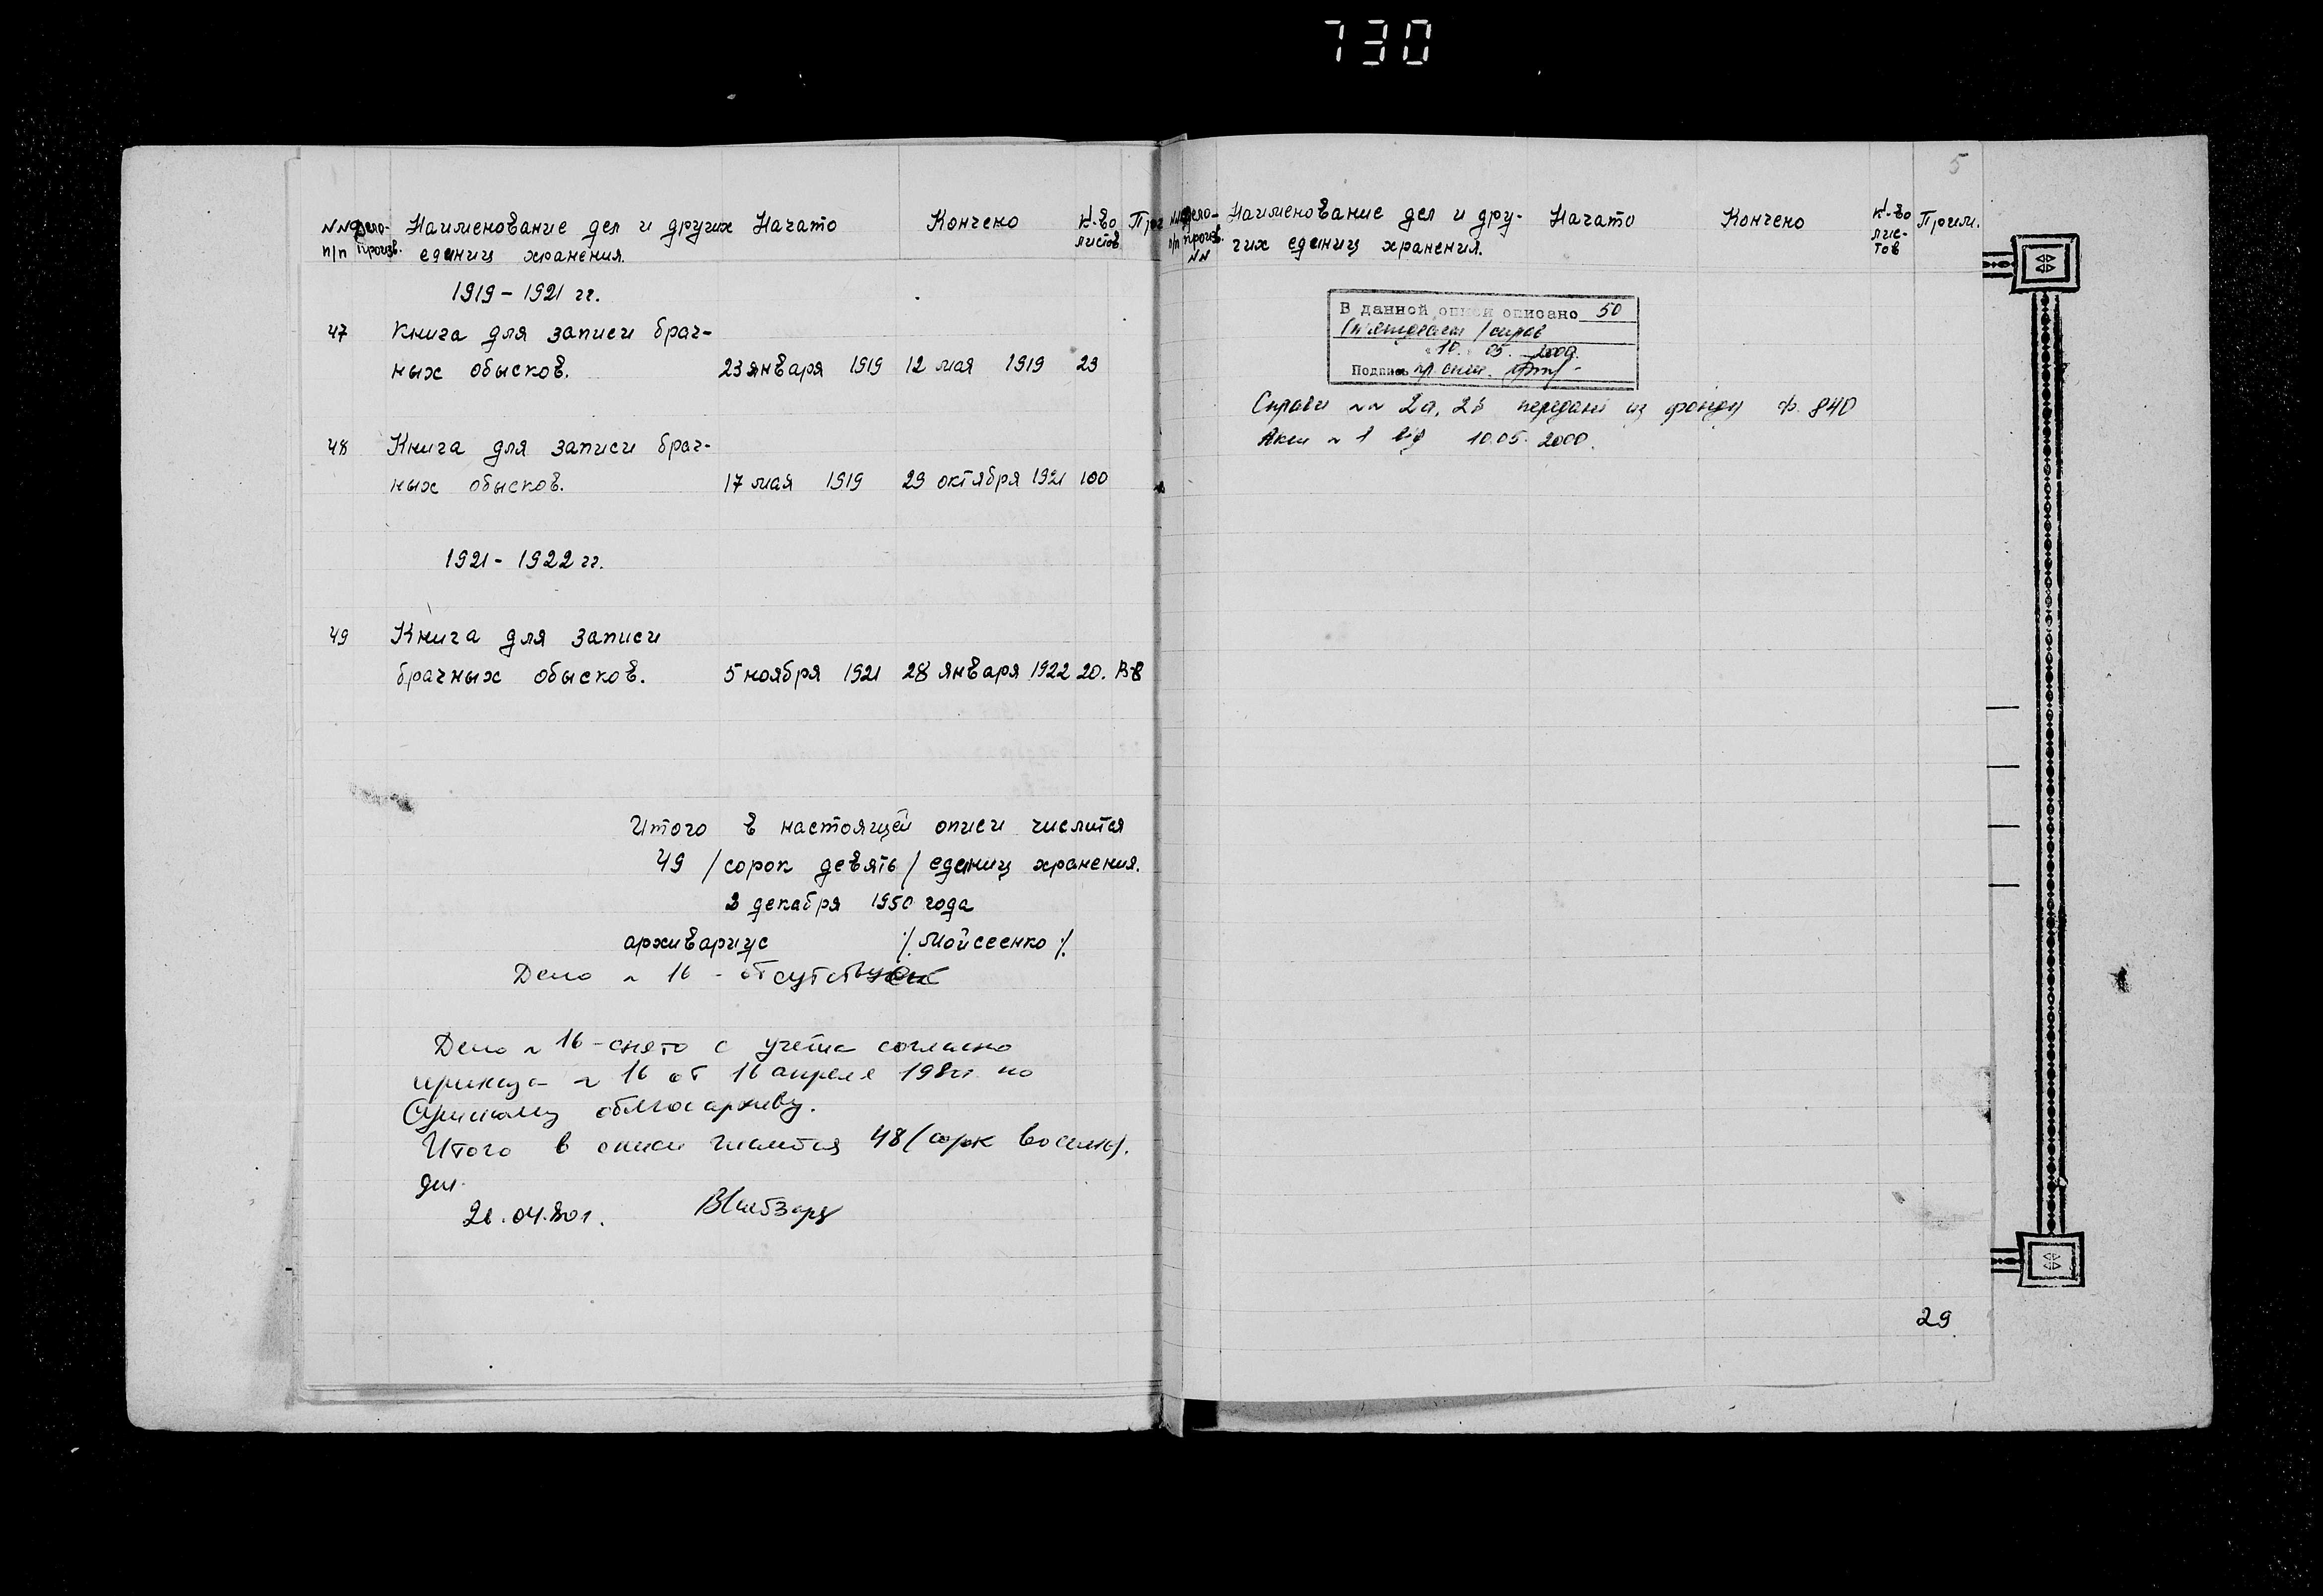 730
NN Дело- Наименование дел и других Начато Кончено к-во
п/п произв. единиц хранения. листов
1919 - 1921 гг.
47 Книга для записи брач-
ных обысков. 23 января 1919 12 мая 1919 23
48 Книга для записи брач-
ных обысков. 17 мая 1919 29 октября 1921 100
1921 - 1922 гг.
49 Книга для записи
брачных обысков. 5 ноября 1921 28 января 1922 20.
Итого в настоящей описи числится
49 /сорок девять/ единиц хранения.
декабря 1950 года
архивариус /Мойсеенко/
Дело № 16 - отсутствует
Дело № 16 - снято с учета согласно
приказа № 16 от 16 апреля по
Сумскому облгосархиву.
Итого в описи числится 48 (сорок восемь)
дел.
5
Дело- Наименование дел и дру- Начато Кончено к-во Прим.
п/п произв. гих единиц хранения. лис-
NN тов
В данной описи описано 50
/п'ятдесят/ справ
10. 05. 2000.
Подпись
Справи №№ 2а, 2б передані из фонду ф. 840
Акт № 1 від 10.05.2000.
29